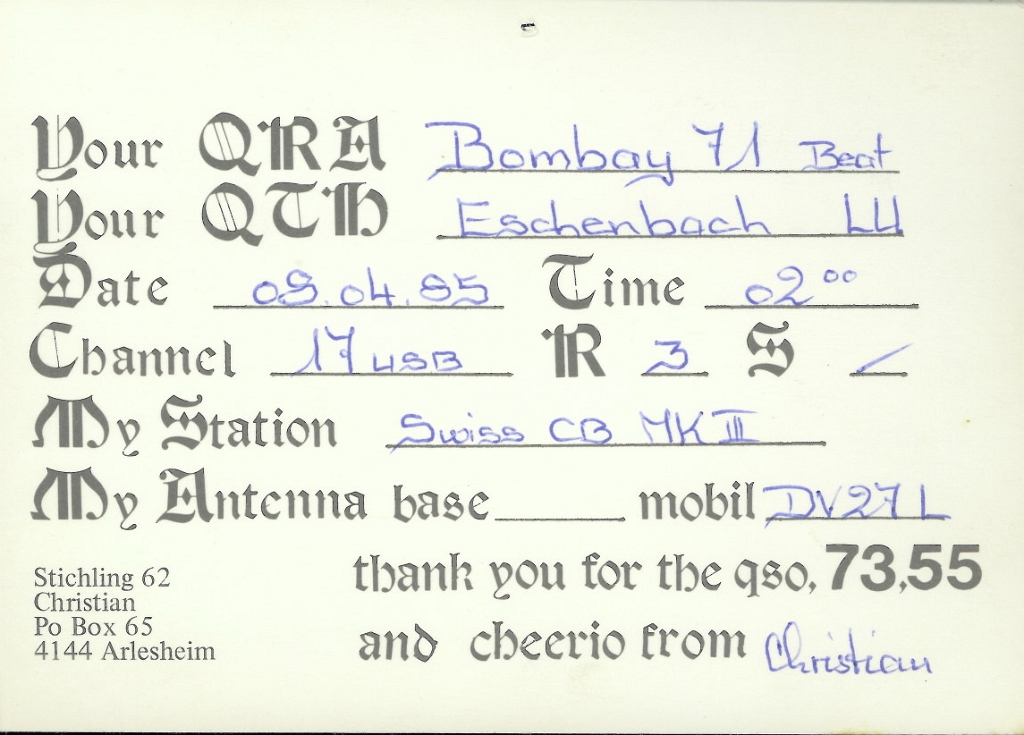 Your QRA Bombay 71 Beat
Your QTH Eschenbach LU
Date 09.04.85 Time 02 00
Channel 17 USB R 3 S /
My Station Swiss CB MK II
My Antenna base mobil DV27 L
thank you for the qso, 73,55
and cheerio from Christian
Stichling 62
Christian
Po Box 65
4144 Arlesheim